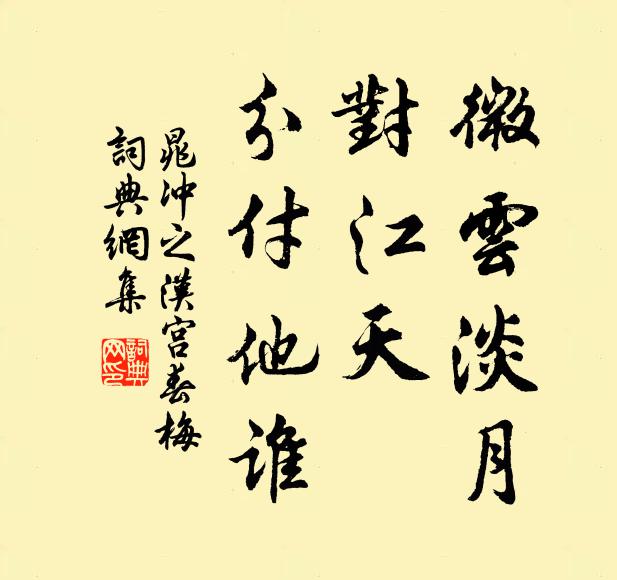 微雲淡月
對江天
分付他誰
晁沖之漢宮春梅
詞典網集
詞典
网印